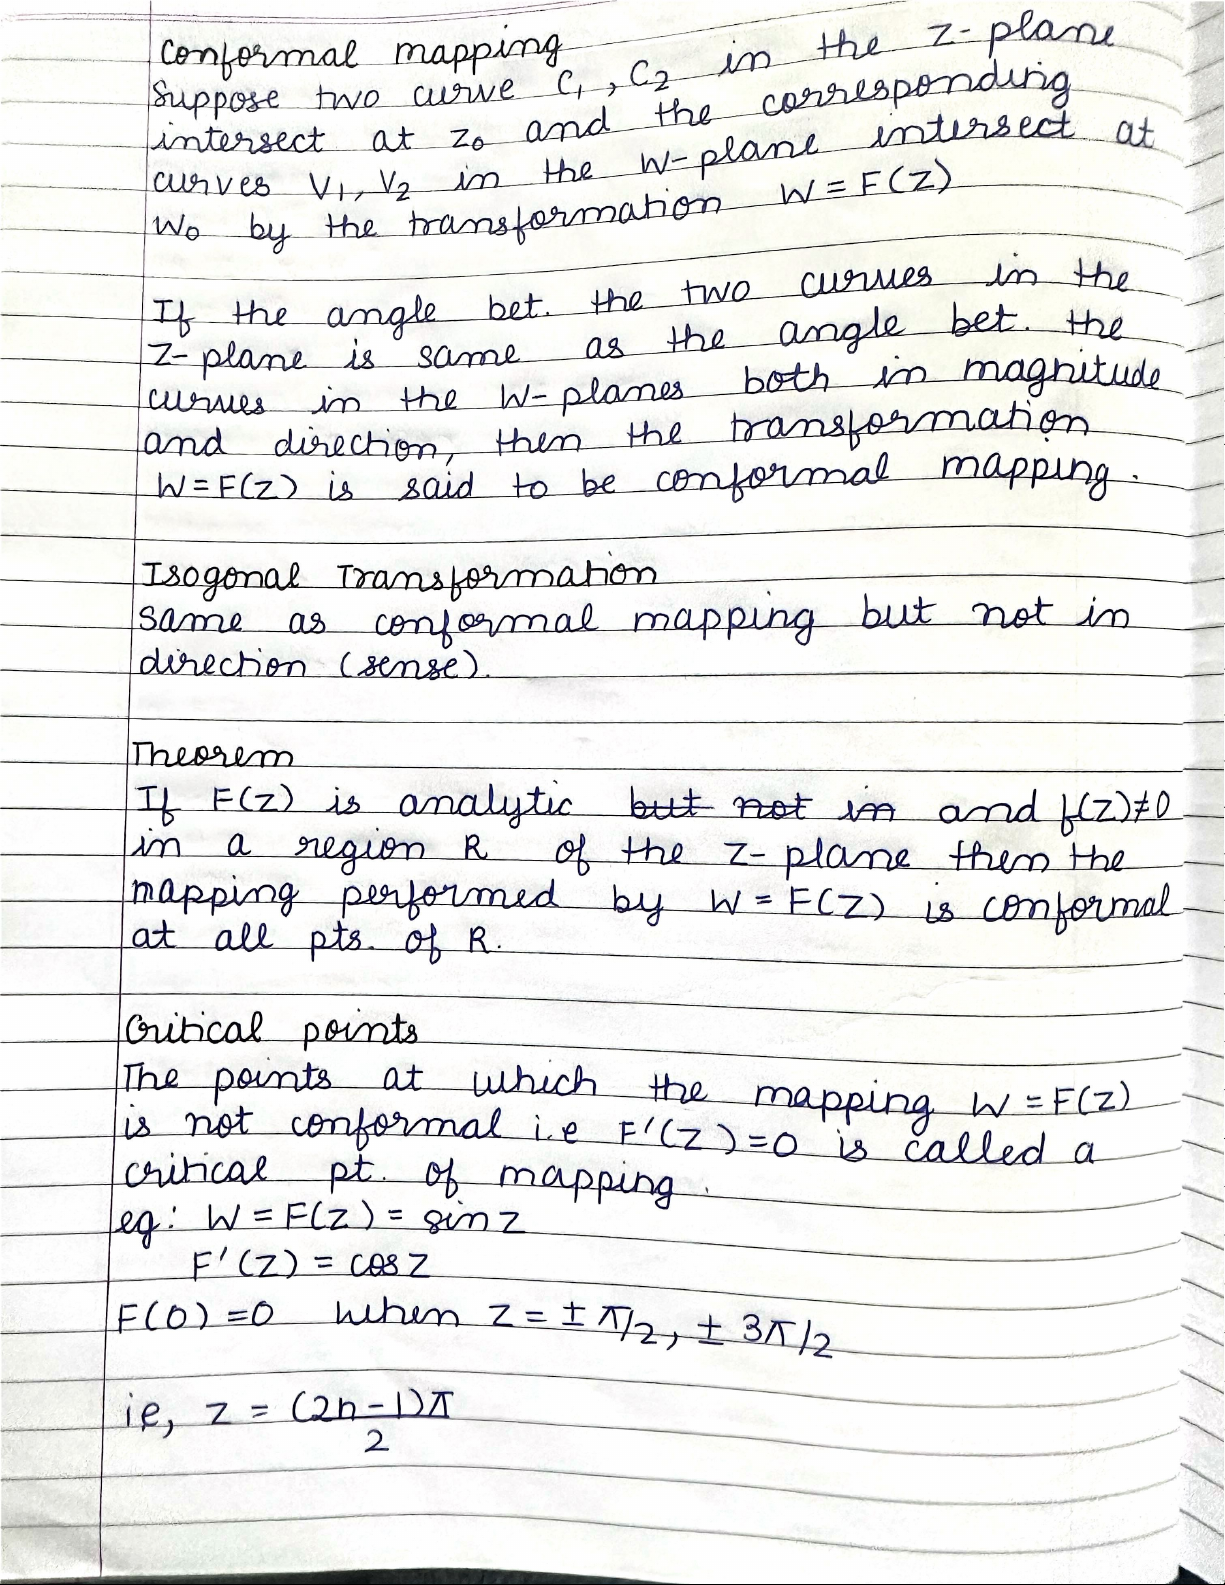 Conformal mapping
Suppose two curve C₁, C₂ in the z-plane
intersect at z₀ and the corresponding
curves V₁, V₂ in the W-plane intersect at
W₀ by the transformation W = F(Z)
If the angle bet. the two curves in the
Z-plane is same as the angle bet. the
curves in the W-planes both in magnitude
and direction, then the transformation
W=F(Z) is said to be conformal mapping.
Isogonal Transformation
Same as conformal mapping but not in
direction (sense).
Theorem
If F(Z) is analytic ~~but not in~~ and f(z)≠0
in a region R of the z-plane then the
mapping performed by W = F(Z) is conformal
at all pts. of R.
Critical points
The points at which the mapping W = F(Z)
is not conformal i.e F'(Z)=0 is called a
critical pt. of mapping.
eg: W = F(Z) = sin z
F'(Z) = cos z
F(0) =0 when z = ± π/2, ± 3π/2
ie, z = (2n-1)π
2